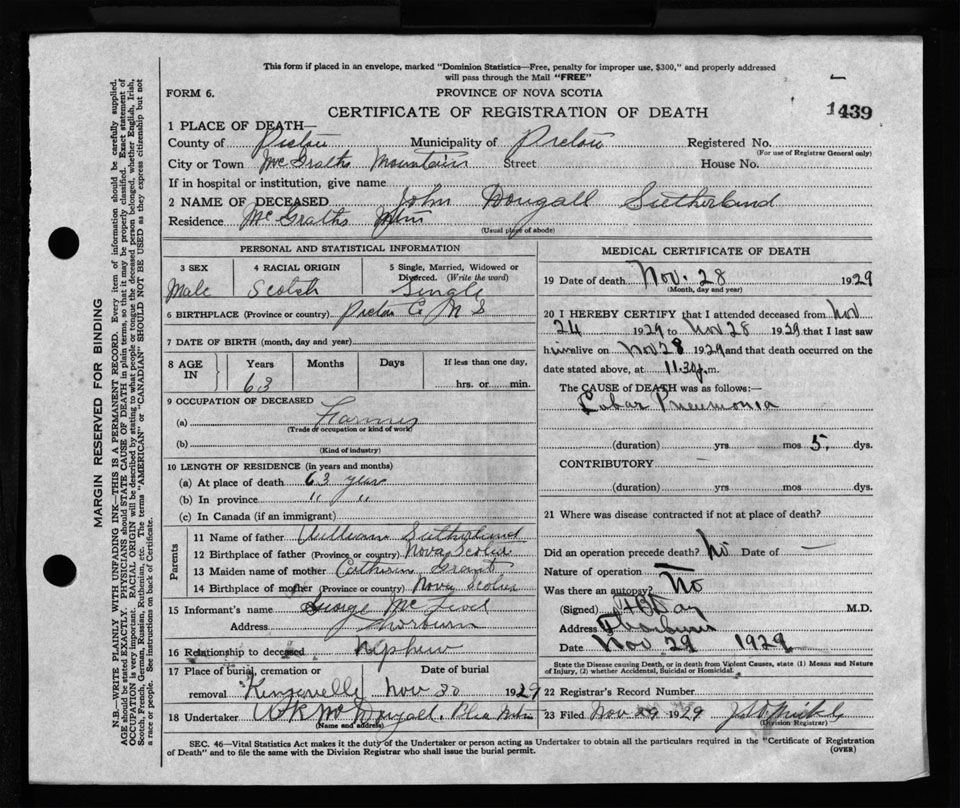 This form if placed in an envelope, marked "Dominion Statistics—Free, penalty for improper use, $300," and properly addressed
will pass through the Mail "FREE"
FORM 6.
PROVINCE OF NOVA SCOTIA
CERTIFICATE OF REGISTRATION OF DEATH
1439
1 PLACE OF DEATH—
County of Pictou Municipality of Pictou Registered No.
(For use of Registrar General only)
City or Town McGraths Mountain Street House No.
If in hospital or institution, give name
2 NAME OF DECEASED John Dougall Sutherland
Residence McGraths Mtn
(Usual place of abode)
PERSONAL AND STATISTICAL INFORMATION
3 SEX 4 RACIAL ORIGIN 5 Single, Married, Widowed or
Divorced. (Write the word)
Male Scotch Single
6 BIRTHPLACE (Province or country) Pictou Co N S
7 DATE OF BIRTH (month, day and year)
8 AGE IN Years Months Days If less than one day,
63 hrs. or min.
9 OCCUPATION OF DECEASED
(a) Farmer
(Trade or occupation or kind of work)
(b)
(Kind of industry)
10 LENGTH OF RESIDENCE (in years and months)
(a) At place of death 63 years
(b) In province " "
(c) In Canada (if an immigrant)
Parents
11 Name of father William Sutherland
12 Birthplace of father (Province or country) Nova Scotia
13 Maiden name of mother Catherine Grant
14 Birthplace of mother (Province or country) Nova Scotia
15 Informant's name George Mc
Address Thorburn
16 Relationship to deceased Nephew
17 Place of burial, cremation or Date of burial
removal Nov 30 1929
18 Undertaker Dougall, Blue Mtn
(Name and address)
MEDICAL CERTIFICATE OF DEATH
19 Date of death Nov. 28 1929
(Month, day and year)
20 I HEREBY CERTIFY that I attended deceased from Nov
24 1929 to Nov 28 1929 that I last saw
him alive on Nov 28 1929 and that death occurred on the
date stated above, at 11.30 p.m.
The CAUSE of DEATH was as follows:—
Lobar Pneumonia
(duration) yrs mos 5 dys.
CONTRIBUTORY —
(duration) yrs mos dys.
21 Where was disease contracted if not at place of death?
Did an operation precede death? No Date of —
Nature of operation —
Was there an autopsy? No
(Signed) M.D.
Address Thorburn
Date Nov 29 1929
State the Disease causing Death, or in death from Violent Causes, state (1) Means and Nature
of Injury, (2) whether Accidental, Suicidal or Homicidal.
22 Registrar's Record Number
23 Filed Nov 29 1929
(Division Registrar)
SEC. 46—Vital Statistics Act makes it the duty of the Undertaker or person acting as Undertaker to obtain all the particulars required in the "Certificate of Registration
of Death" and to file the same with the Division Registrar who shall issue the burial permit. (OVER)
MARGIN RESERVED FOR BINDING
N.B.—WRITE PLAINLY WITH UNFADING INK—THIS IS A PERMANENT RECORD. Every item of information should be carefully supplied.
AGE should be stated EXACTLY. PHYSICIANS should STATE CAUSE OF DEATH in plain terms, so that it may be properly classified. Exact statement of
OCCUPATION is very important. RACIAL ORIGIN will be described by stating to what people or tongue the deceased person belonged, whether English, Irish,
Scotch, French, German, Russian, Ruthenian, etc. The terms "AMERICAN" or "CANADIAN" SHOULD NOT BE USED as they express citizenship but not
a race or people. See instructions on back of Certificate.